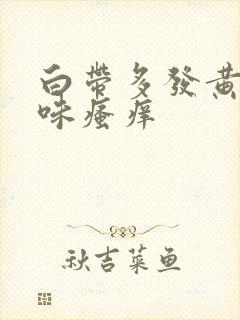 白带多發黄
味瘙痒
秋吉菜鱼